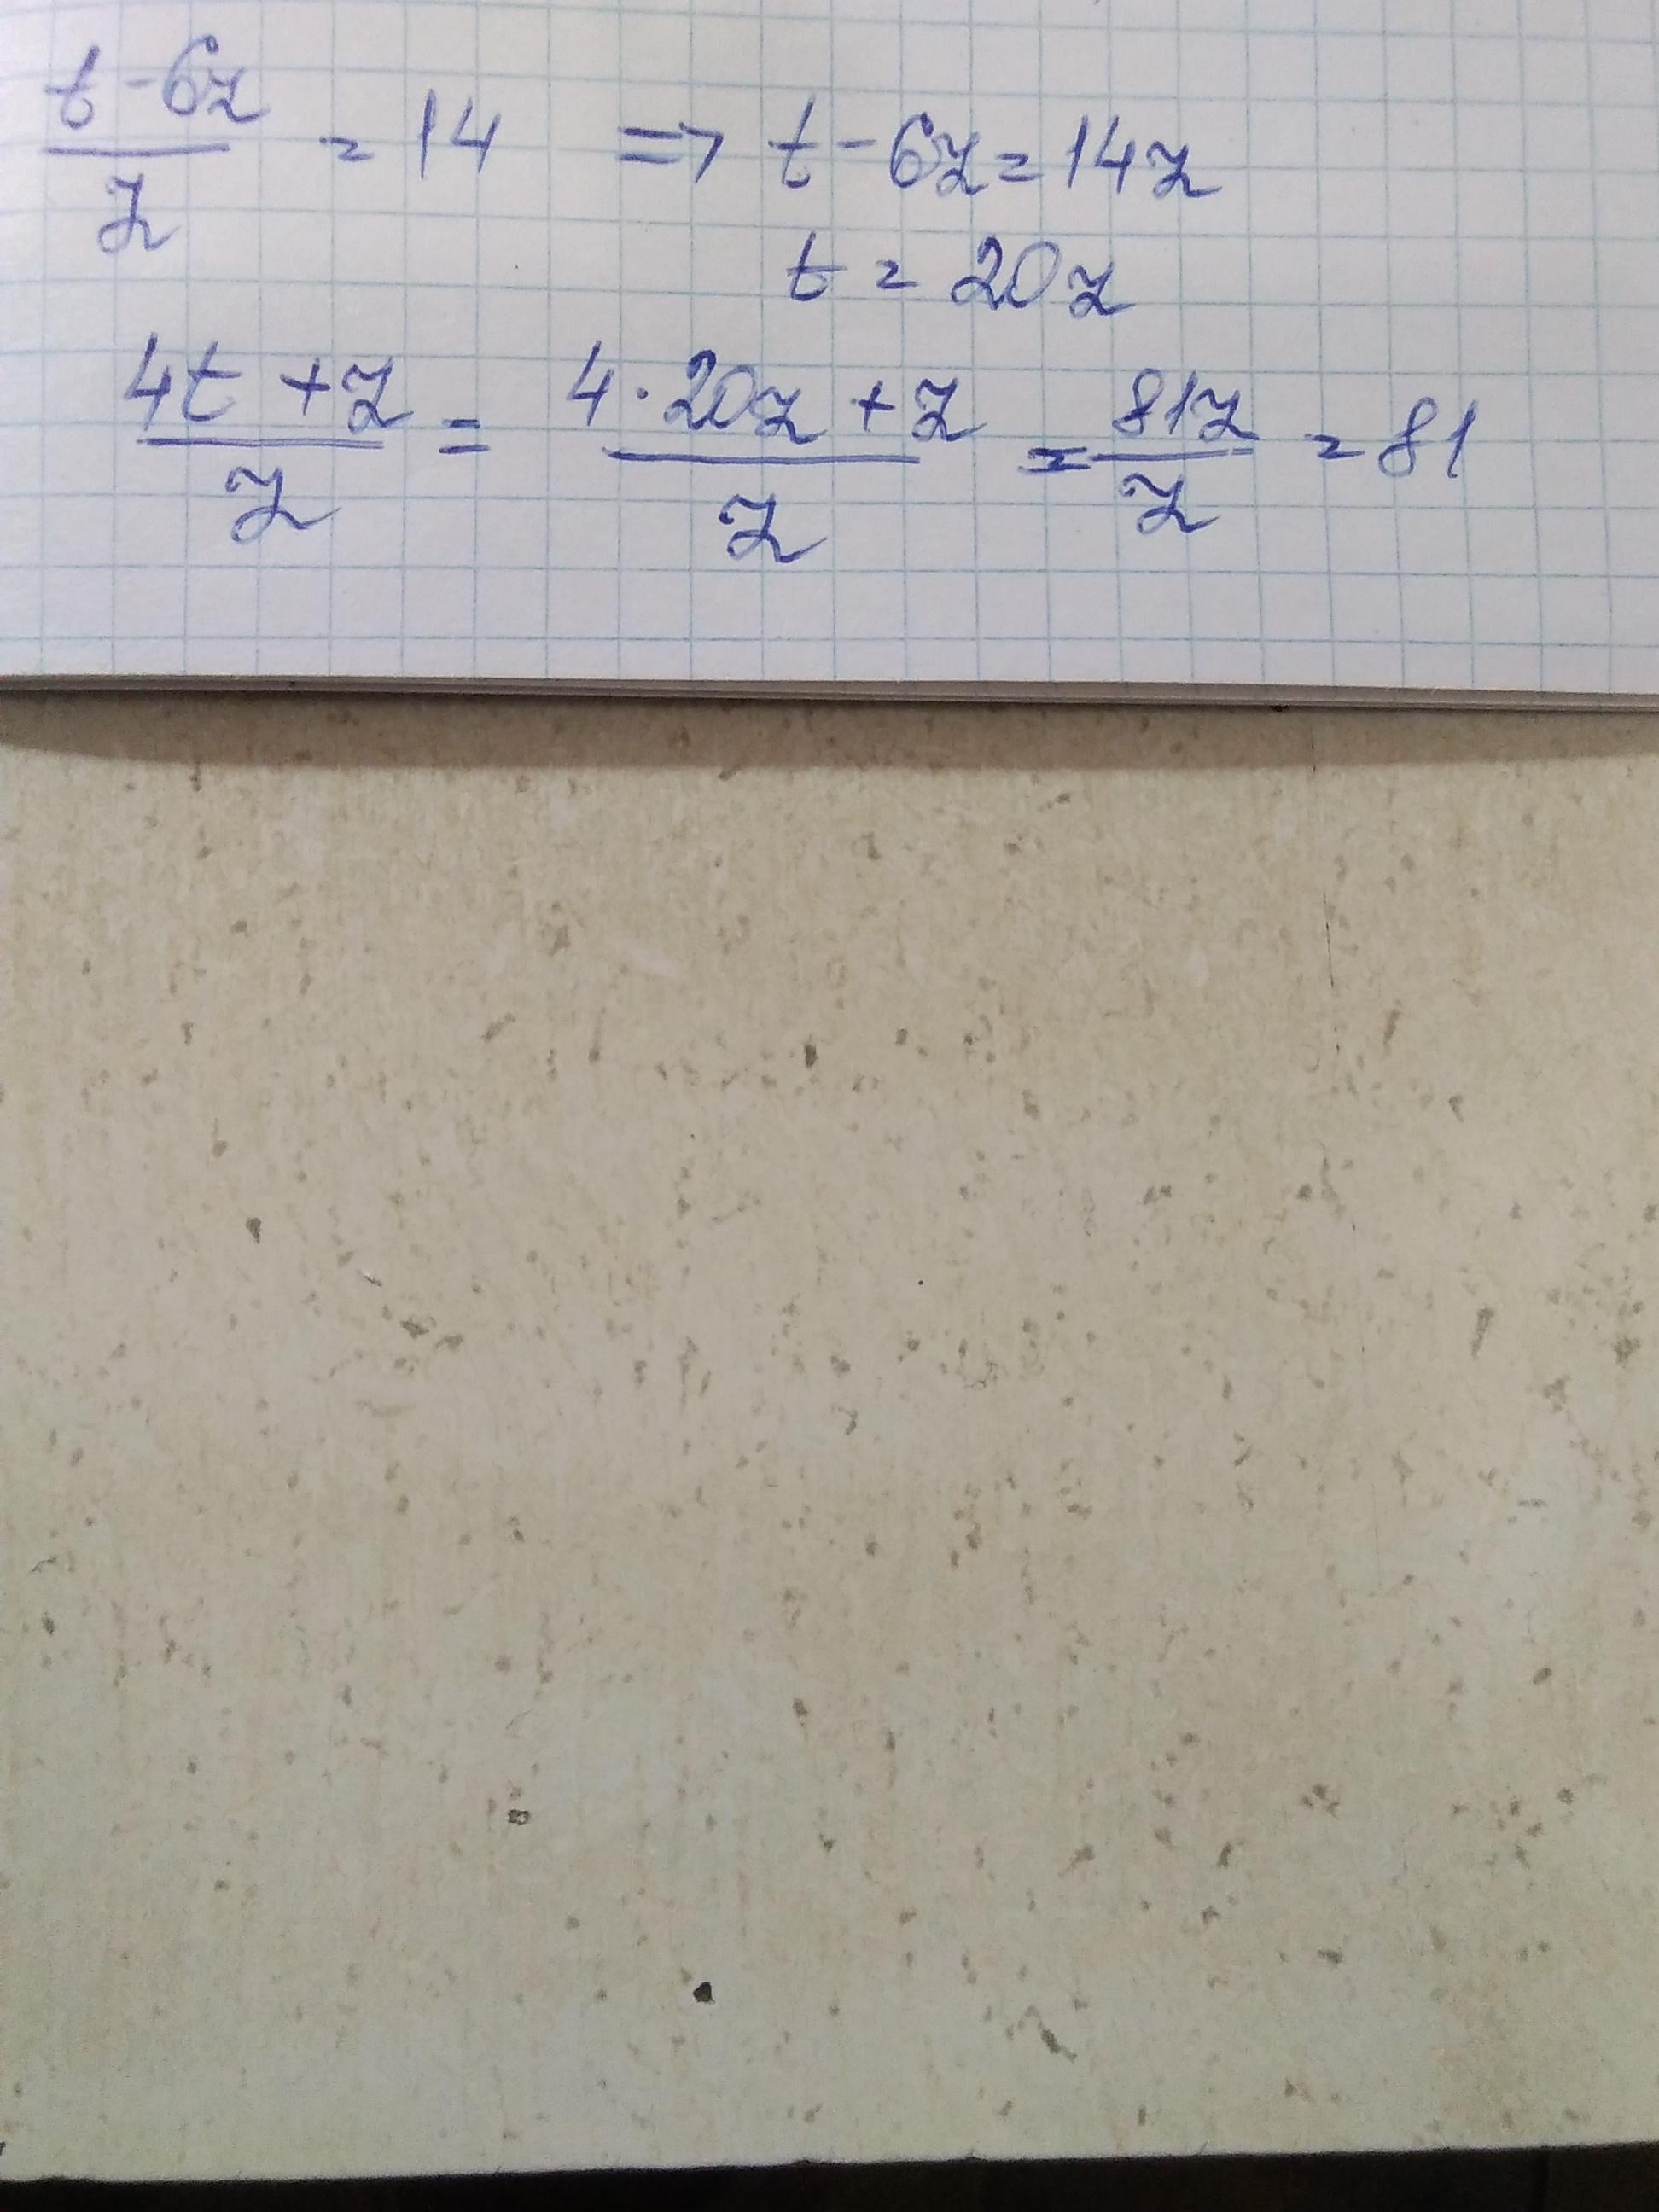 t-6z/z = 14 => t-6z=14z
t = 20z
4t+z/z = 4·20z+z/z = 81z/z = 81